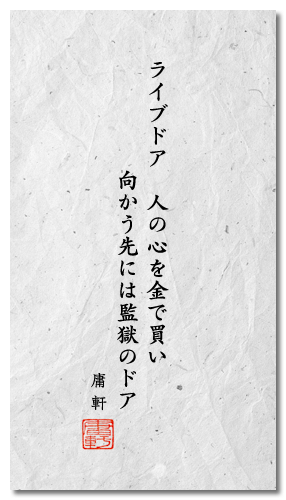 ライブドア　人の心を金で買い
向かう先には監獄のドア
庸軒